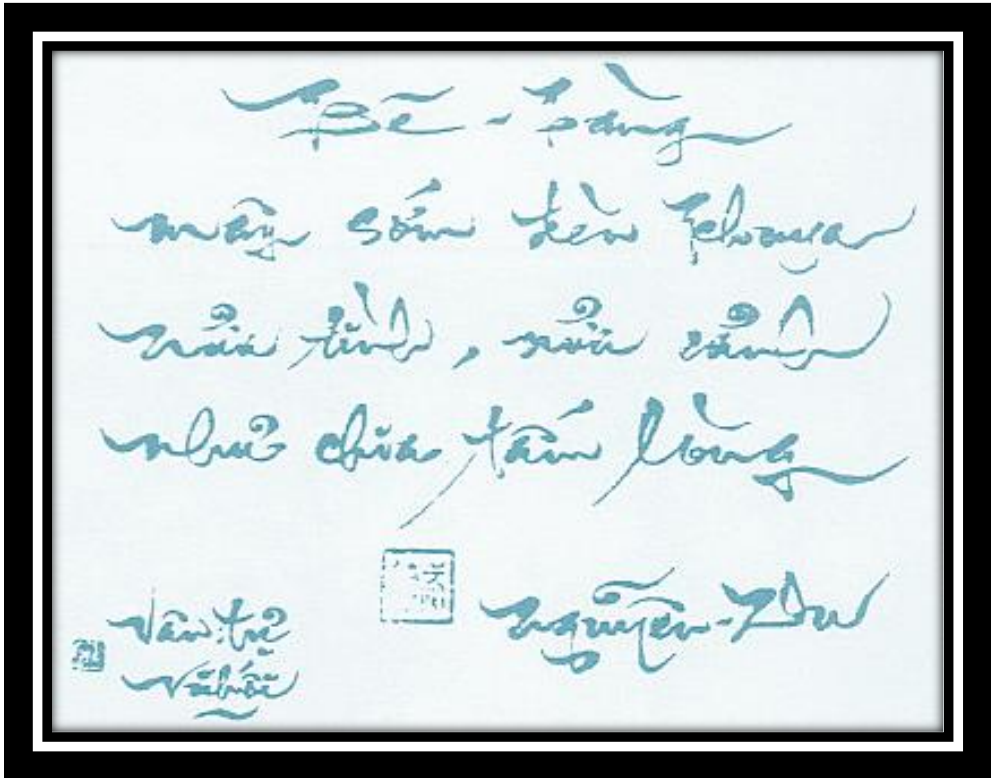 Bẽ-bàng
mây sớm đèn khuya
nửa tình, nửa cảnh
như chia tấm lòng
Nguyễn-Du
Vân tử